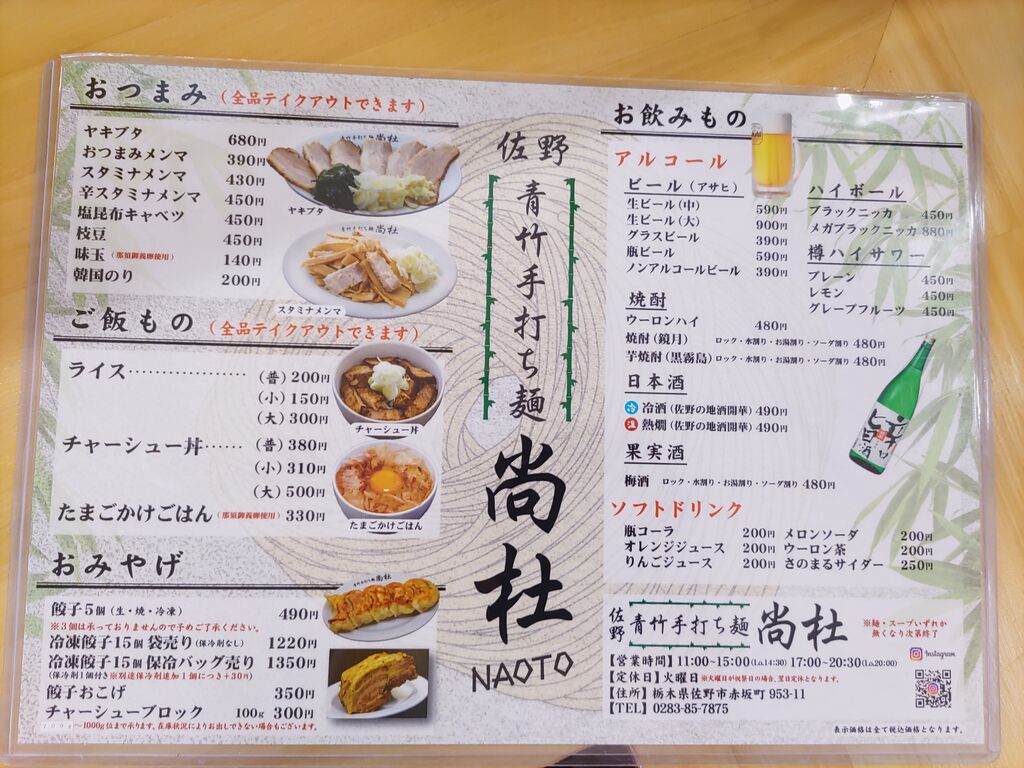 おつまみ (全品テイクアウトできます)
ヤキブタ 680円
おつまみメンマ 390円
スタミナメンマ 430円
辛スタミナメンマ 450円
塩昆布キャベツ 450円
枝豆 450円
味玉 (那須御養卵使用) 140円
韓国のり 200円
尚杜
ヤキブタ
青竹手打ち麺 尚杜
スタミナメンマ
ご飯もの (全品テイクアウトできます)
ライス (普) 200円
(小) 150円
(大) 300円
チャーシュー丼 (普) 380円
(小) 310円
(大) 500円
たまごかけごはん (那須御養卵使用) 330円
チャーシュー丼
たまごかけごはん
おみやげ
餃子5個 (生・焼・冷凍) 490円
※3個は承っておりませんので予めご了承ください。
冷凍餃子15個 袋売り (保冷剤なし) 1220円
冷凍餃子15個 保冷バッグ売り 1350円
(保冷剤1個付き※別途保冷剤追加1個につき+30円)
餃子おこげ 350円
チャーシューブロック 100g 300円
700g～1000g位まで承ります。在庫状況によりお出しできない場合もございます。
佐野
青竹手打ち麺
尚杜
NAOTO
お飲みもの
アルコール
ビール (アサヒ)
生ビール (中) 590円
生ビール (大) 900円
グラスビール 390円
瓶ビール 590円
ノンアルコールビール 390円
ハイボール
ブラックニッカ 450円
メガブラックニッカ 880円
樽ハイサワー
プレーン 450円
レモン 450円
グレープフルーツ 450円
焼酎
ウーロンハイ 480円
焼酎 (鏡月) ロック・水割り・お湯割り・ソーダ割り 480円
芋焼酎 (黒霧島) ロック・水割り・お湯割り・ソーダ割り 480円
日本酒
冷 冷酒 (佐野の地酒開華) 490円
温 熱燗 (佐野の地酒開華) 490円
果実酒
梅酒 ロック・水割り・お湯割り・ソーダ割り 480円
ソフトドリンク
瓶コーラ 200円
オレンジジュース 200円
りんごジュース 200円
メロンソーダ 200円
ウーロン茶 200円
さのまるサイダー 250円
佐野 青竹手打ち麺 尚杜
※麺・スープいずれか
無くなり次第終了
【営業時間】11:00~15:00(l.o.14:30) 17:00~20:30(l.o.20:00)
【定休日】火曜日 ※火曜日が祝祭日の場合、翌日定休となります。
【住所】栃木県佐野市赤坂町 953-11
【TEL】0283-85-7875
Instagram
表示価格は全て税込価格となります。